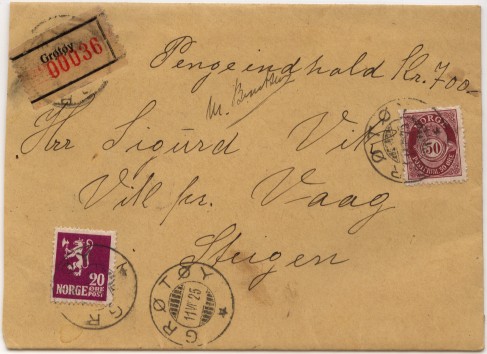 Grøtøy
00036
Pengeindhold Kr. 700-
Hrr Sigurd Vik
Vik pr. Vaag
Steigen
NORGE
50
20
ØRE
POST
NORGE
GRØTØY
11 VI 25
GRØTØY
GR